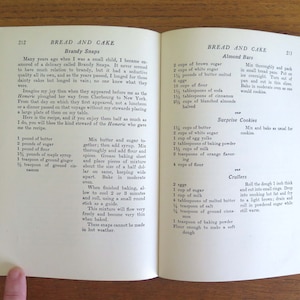 212 BREAD AND CAKE
Brandy Snaps
Many years ago when I was a small child, I became en-
amored of a delicacy called Brandy Snaps. It never seemed
to have much relation to brandy, but it had a seductive
quality all its own, and as the years passed, I longed for those
dainty cakes but longed in vain; no one knew what they
were.
Imagine my joy then when they appeared before me as the
plunged her way from Charleston to New York.
From that day on which they first appeared, not a luncheon
or a dinner passed on that voyage without my stowing away
a large plate of them at my elbow.
Here is the recipe, and if you enjoy them half as much as
I do, you will bless the kind steward of the who gave
me the recipe.
1 pound of butter
1 pound of sugar
1 pound of flour
1½ pounds of maple syrup
1 teaspoon of ground ginger
½ teaspoon of ground cin-
namon
Mix butter and sugar to-
gether; then add syrup. Mix
thoroughly and add flour and
spices. Grease baking sheet
and place pieces of mixture
about the size of a half dol-
lar on same, keeping wide
apart. Bake in moderate
oven.
When finished baking, al-
low to cool 2 or 3 minutes
and roll, using a small round
stick as a guide.
This mixture will flow very
freely and become very thin
when baked.
These snaps cannot be made
in hot weather.
BREAD AND CAKE 213
Almond Bars
2 cups of brown sugar
2 cups of white sugar
1½ pounds of butter melted
2 eggs
12 cups of flour
2 tablespoons of soda
2 tablespoons of cinnamon
1½ cups of blanched almonds
Mix thoroughly and pack
in small bread pans. Put in
ice overnight. Turn out of
pan and cut in thin slices.
Bake in moderate oven as you
would cookies.
Surprise Cookies
1½ cups of butter
2 cups of white sugar
1 cup of egg yolks
2 teaspoons of baking powder
1½ cups of milk
2 teaspoons of orange flavor-
ing
4 cups of flour
Mix and bake as usual for
cookies.
Crullers
2 eggs
1 cup of sugar
1 cup of milk
4 tablespoons of melted butter
½ teaspoon of salt
½ teaspoon of ground cinna-
mon
4 teaspoons of baking powder
Flour enough to make a soft
dough
Roll the dough ½ inch thick
and cut into small rings. Drop
into smoking hot fat and fry
to a light brown; drain and
roll in powdered sugar while
still warm.